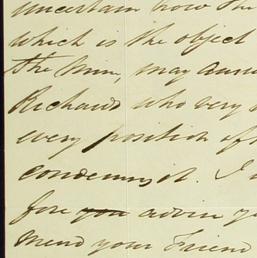 uncertain how the
which is the object
the Mine, may
Richards who very
every position of
condemns it. I
fore you advise
mend your Friend